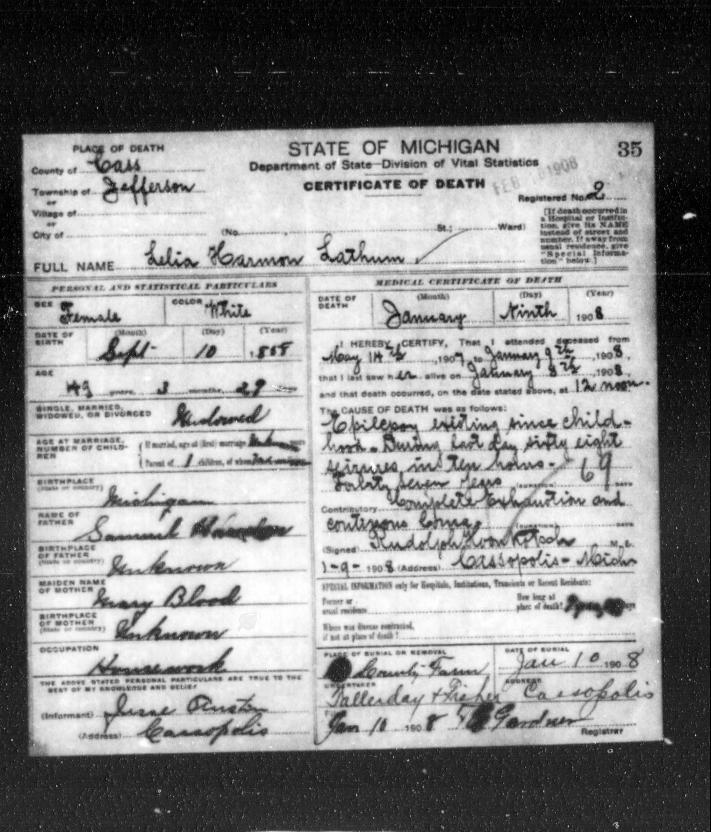 PLACE OF DEATH
STATE OF MICHIGAN
35
County of Cass
Department of State—Division of Vital Statistics
Township of Jefferson
CERTIFICATE OF DEATH
FEB 1908
or
Registered No. 2
Village of
or
City of (No. St.; Ward)
[If death occurred in
a Hospital or Institu-
tion, give its NAME
instead of street and
number. If away from
usual residence, give
"Special Informa-
tion" below.]
FULL NAME Lelia Harmon Lathum
PERSONAL AND STATISTICAL PARTICULARS
SEX Female
COLOR White
DATE OF BIRTH (Month) (Day) (Year)
Sept 10 1858
AGE
49 years, 3 months, 29
SINGLE, MARRIED,
WIDOWED, OR DIVORCED Widowed
AGE AT MARRIAGE,
NUMBER OF CHILD-
REN
If married, age at (first) marriage years
Parent of 1 children, of whom
BIRTHPLACE
(State or country) Michigan
NAME OF
FATHER Samuel
BIRTHPLACE
OF FATHER
(State or country) Unknown
MAIDEN NAME
OF MOTHER Mary Blood
BIRTHPLACE
OF MOTHER
(State or country) Unknown
OCCUPATION
Housework
THE ABOVE STATED PERSONAL PARTICULARS ARE TRUE TO THE
BEST OF MY KNOWLEDGE AND BELIEF
(Informant) Jesse
(Address) Cassopolis
MEDICAL CERTIFICATE OF DEATH
DATE OF
DEATH (Month) (Day) (Year)
January Ninth 1908
I HEREBY CERTIFY, That I attended deceased from
May 14th, 1907, to January 9th, 1908,
that I last saw her alive on January 8th, 1908,
and that death occurred, on the date stated above, at 12 noon.
The CAUSE OF DEATH was as follows:
Epilepsy existing since child-
hood. During last day sixty eight
seizures in ten hours.
seven years (DURATION) 69 DAYS
Contributory Complete Exhaustion and
continous Coma. (DURATION) DAYS
(Signed) Rudolph M.D.
1-9-1908 (Address) Cassopolis - Mich
SPECIAL INFORMATION only for Hospitals, Institutions, Transients or Recent Residents:
Former or
usual residence
How long at
place of death? Days
Where was disease contracted,
if not at place of death?
PLACE OF BURIAL OR REMOVAL
County Farm
DATE OF BURIAL
Jan 10 1908
UNDERTAKER
ADDRESS
& Fisher Cassopolis
Jan 10 1908 Gardner
Registrar